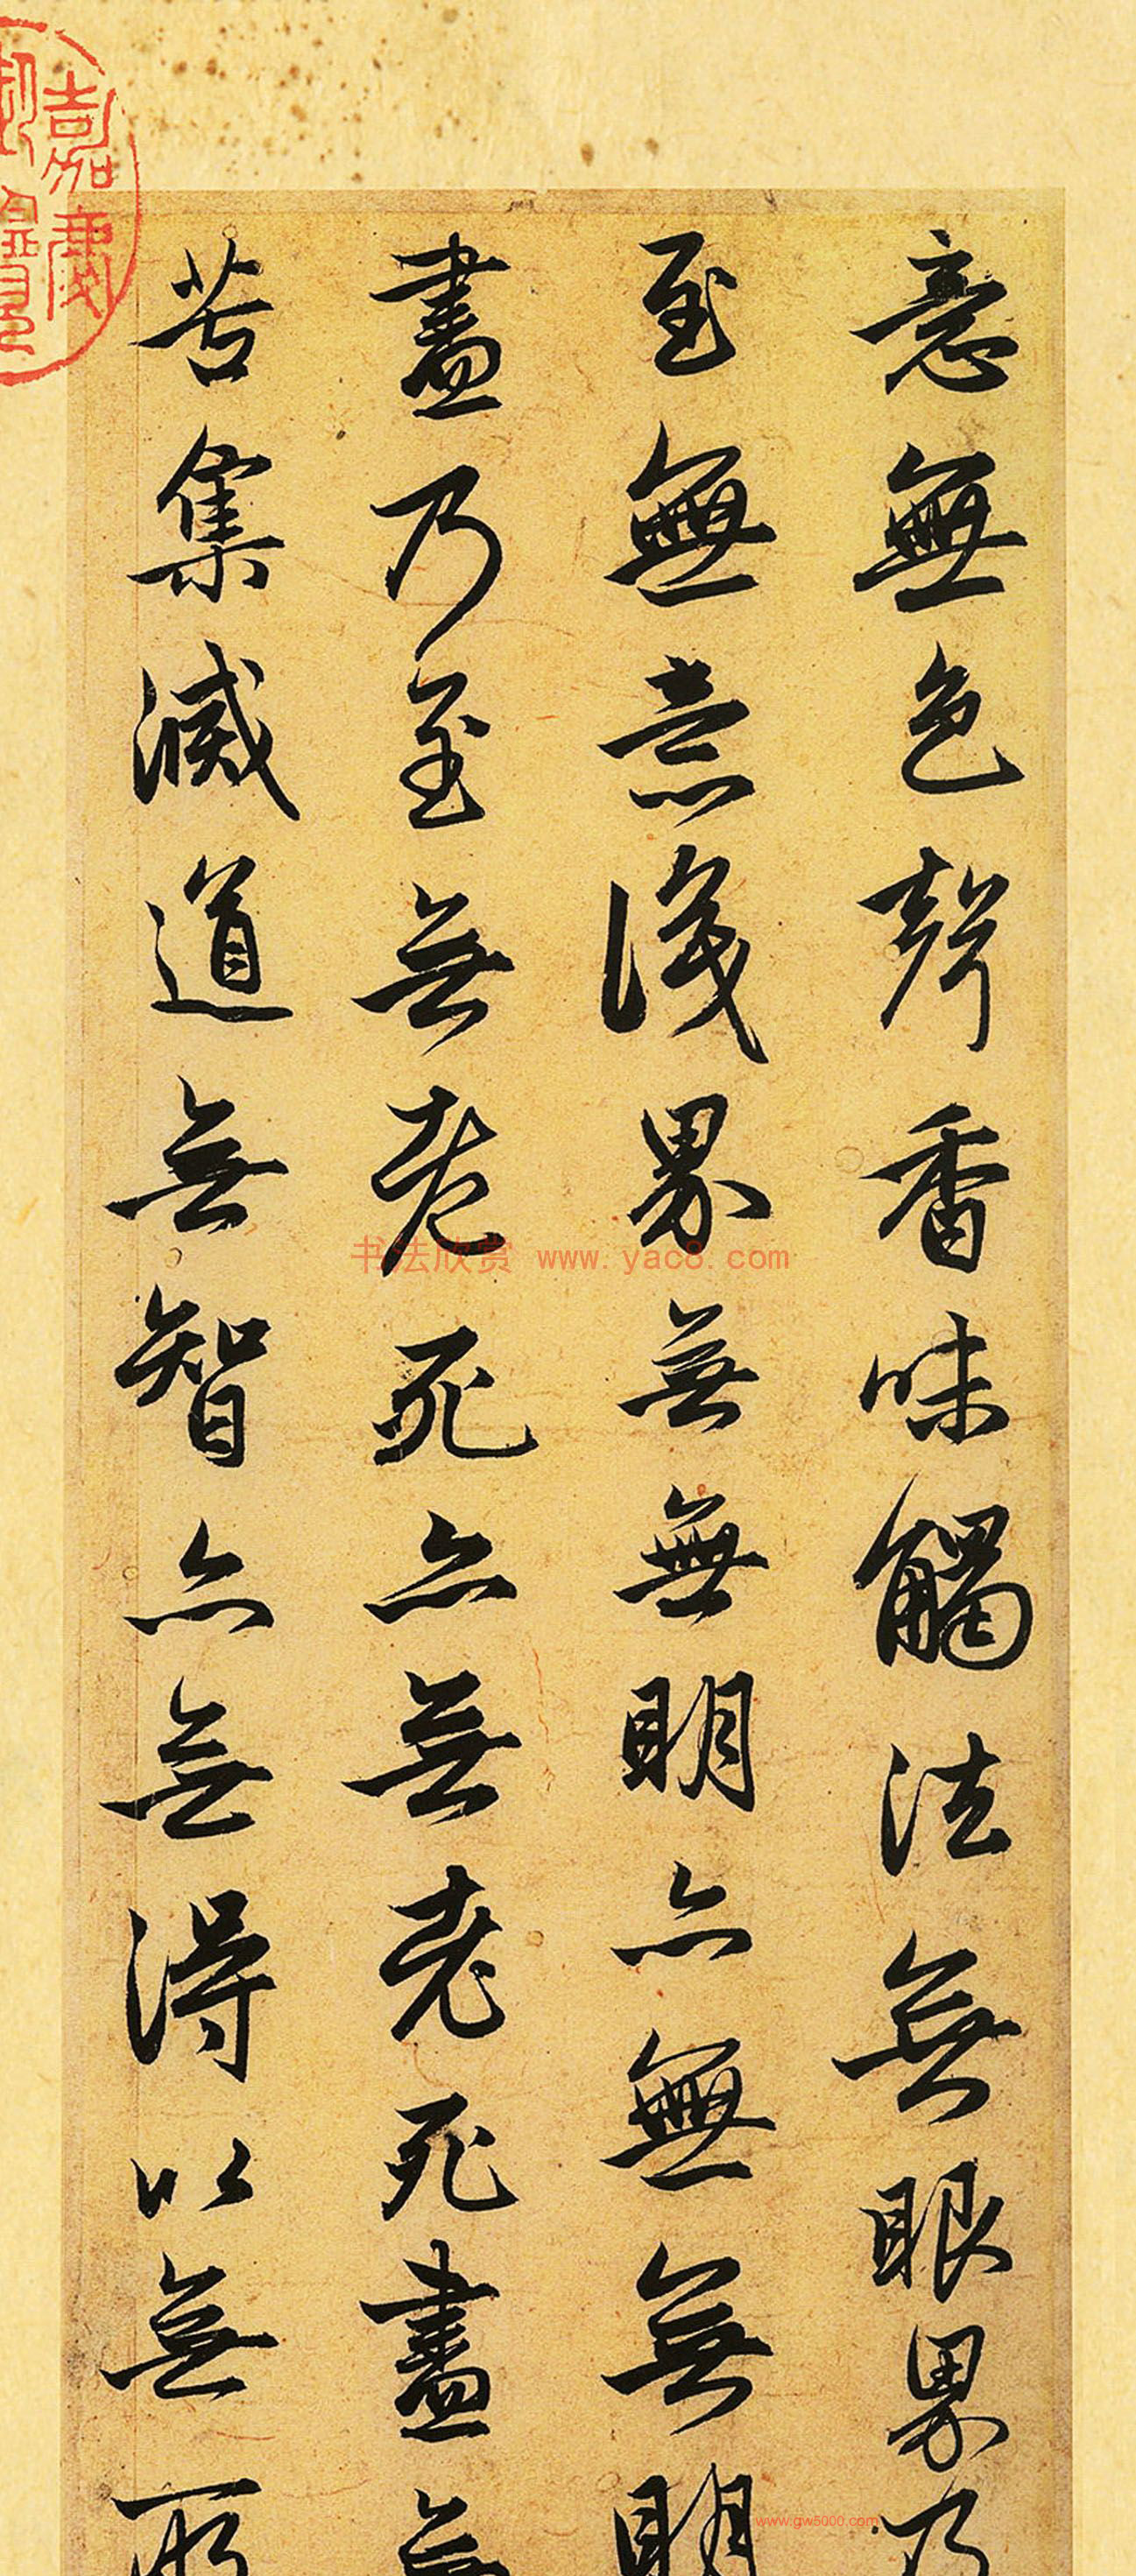 意無色聲香味觸法無眼界乃
至無意識界無無明亦無無明
盡乃至無老死亦無老死盡無
苦集滅道無智亦無得以無所
嘉慶
书法欣赏 www.yac8.com
www.gw5000.com